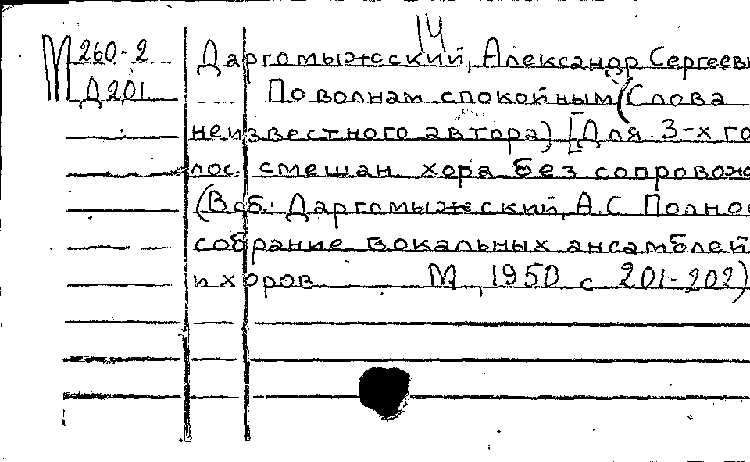 14
М 260-2 Даргомыжский, Александр Сергееви
Д 201 По волнам спокойным (Слова
неизвестного автора) [Для 3-х го
лос. смешан. хора без сопровож
(В сб.: Даргомыжский, А.С. Полное
собрание вокальных ансамблей
и хоров М, 1950 с 201-202)